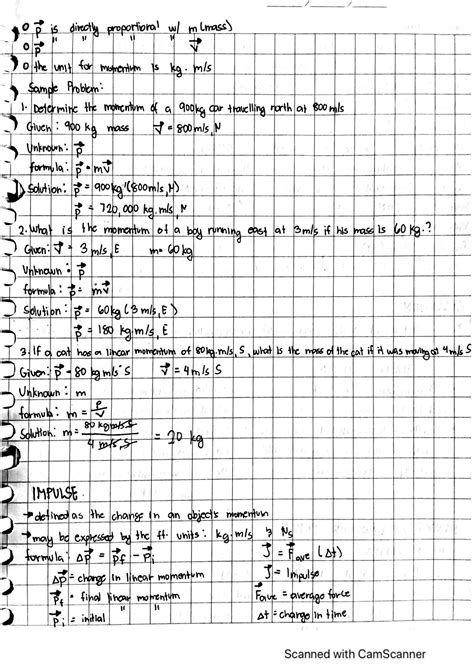 o p⃗ is directly proportional w/ m (mass)
o p⃗ " " " " v⃗
o the unit for momentum is kg · m/s
Sample Problem:
1. Determine the momentum of a 900kg car travelling north at 800 m/s
Given: 900 kg mass v⃗ = 800 m/s, N
Unknown: p⃗
formula: p⃗ = mv⃗
Solution: p⃗ = 900kg (800m/s, N)
p⃗ = 720,000 kg.m/s, N
2. What is the momentum of a boy running east at 3m/s if his mass is 60 kg.?
Given: v⃗ = 3 m/s, E m= 60kg
Unknown: p⃗
formula: p⃗ = mv⃗
Solution: p⃗ = 60kg (3 m/s, E)
p⃗ = 180 kg.m/s, E
3. If a cat has a linear momentum of 80kg.m/s, S, what is the mass of the cat if it was moving at 4m/s S
Given: p⃗ = 80 kg m/s S v⃗ = 4 m/s S
Unknown: m
formula: m = p/v⃗
Solution: m = 80 kgm/s S / 4 m/s, S = 20 kg
IMPULSE
→ defined as the change in an object's momentum
→ may be expressed by the ff. units: kg.m/s & Ns
formula: Δp⃗ = p⃗f - p⃗i J⃗ = F⃗ave (Δt)
Δp⃗ = change in linear momentum J⃗ = Impulse
p⃗f = final linear momentum Fave = average force
p⃗i = initial " " Δt = change in time
Scanned with CamScanner